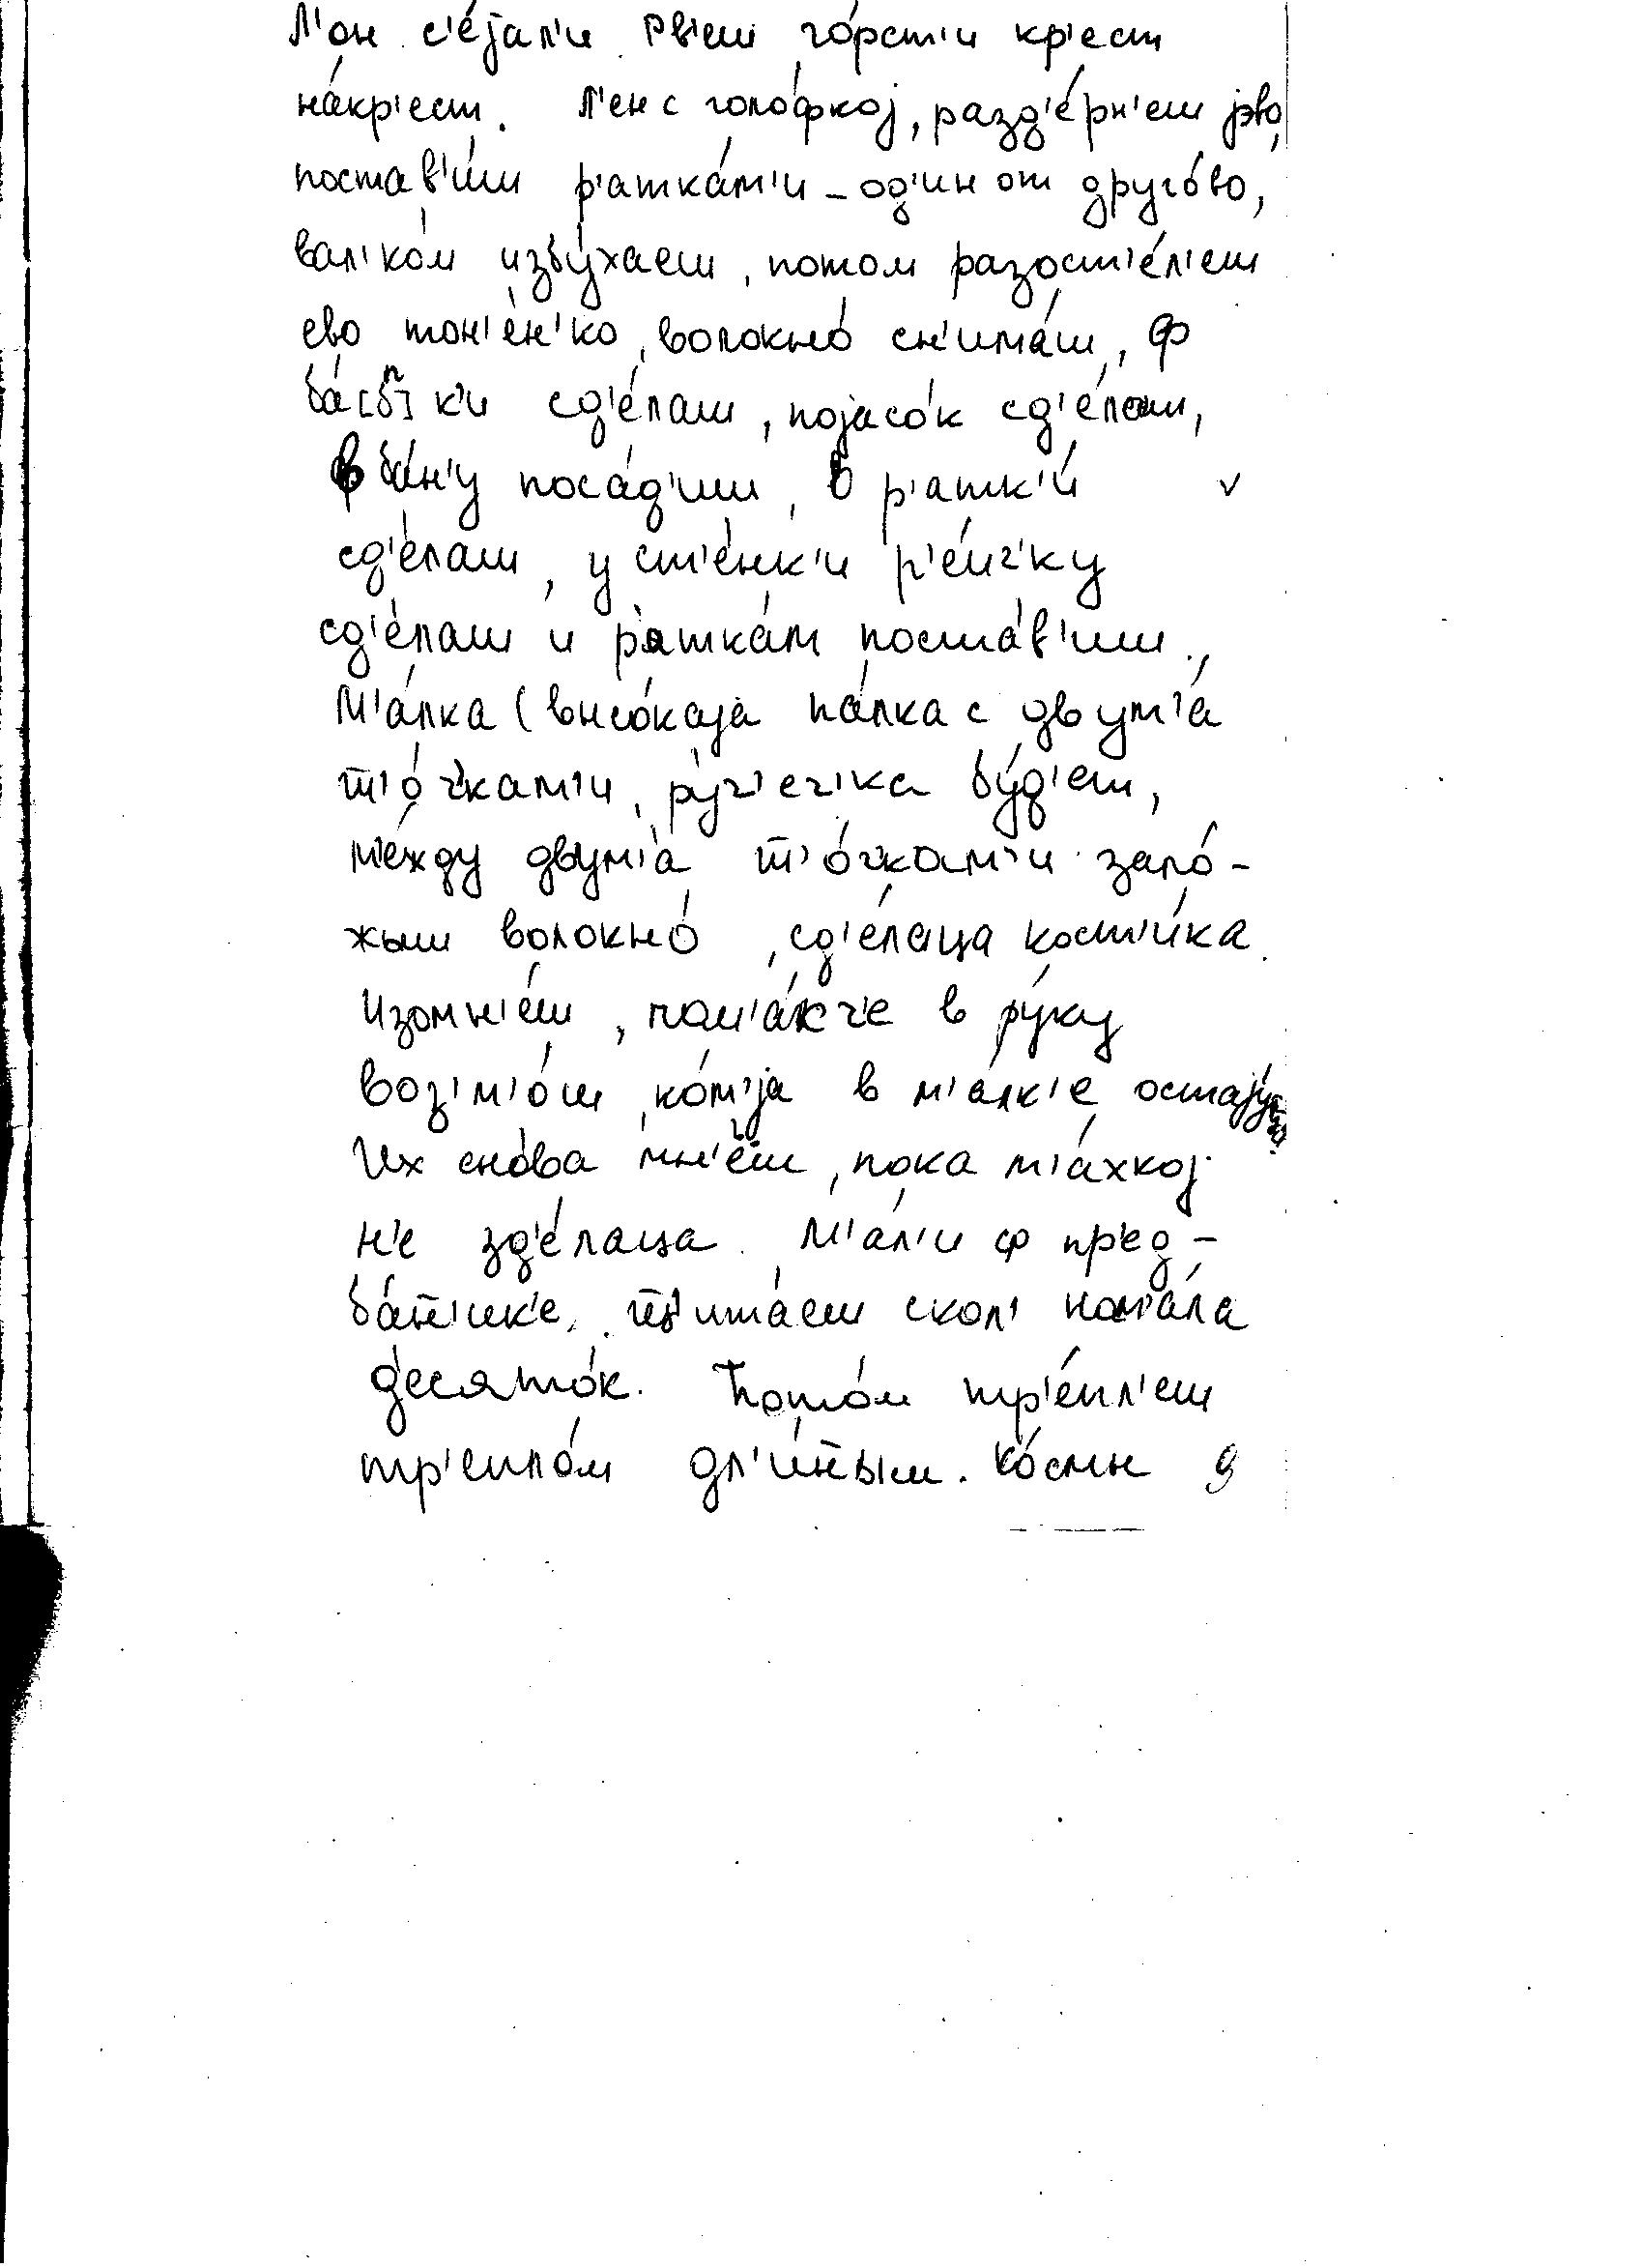 Л'он с'е́јал'и. Рв'еш го́рст'и кр'ест
на́кр'ест. Л'ен с голо́фкој, разд'е́рн'еш јэво,
постав'и́ш р'атка́м'и – од'ин от друго́во,
вал'ко́м избу́хаеш, потом разост'е́л'еш
ево тон'е́н'ко, волокно́ сн'има́ш, ф
ба́[б]пк'и сд'е́лаш, појасо́к сд'е́лаш,
в ба́н'у поса́д'иш, в р'атк'и́
сд'е́лаш, у ст'е́нк'и р'е́йч'ку
сд'е́лаш и р'атка́м поста́в'иш.,
М'а́лка (висо́каја па́лка с двум'а́
т̅'о́ч'кам'и, ру́ч'еч'ка бу́д'ет,
м'е́жду двум'а́ т̅'о́ч'кам'и зало́-
жыш волокно́, сд'е́лаца кост'и́ка.
Изомн'е́ш, пом'а́кч'е в ру́ку
воз'м'о́ш, ко́м'ја в м'а́лк'е остају́ца
Их сно́ва мн'еш, пока м'а́хкој
н'е зд'е́лаца. М'а́л'и ф пр'ед-
ба́н̅'ик'е. шч'ита́еш скол' нам'а́ла
д'есято́к. Пото́м тр'е́пл'еш
тр'епло́м дл'и́н̅ым. Ко́сми 9